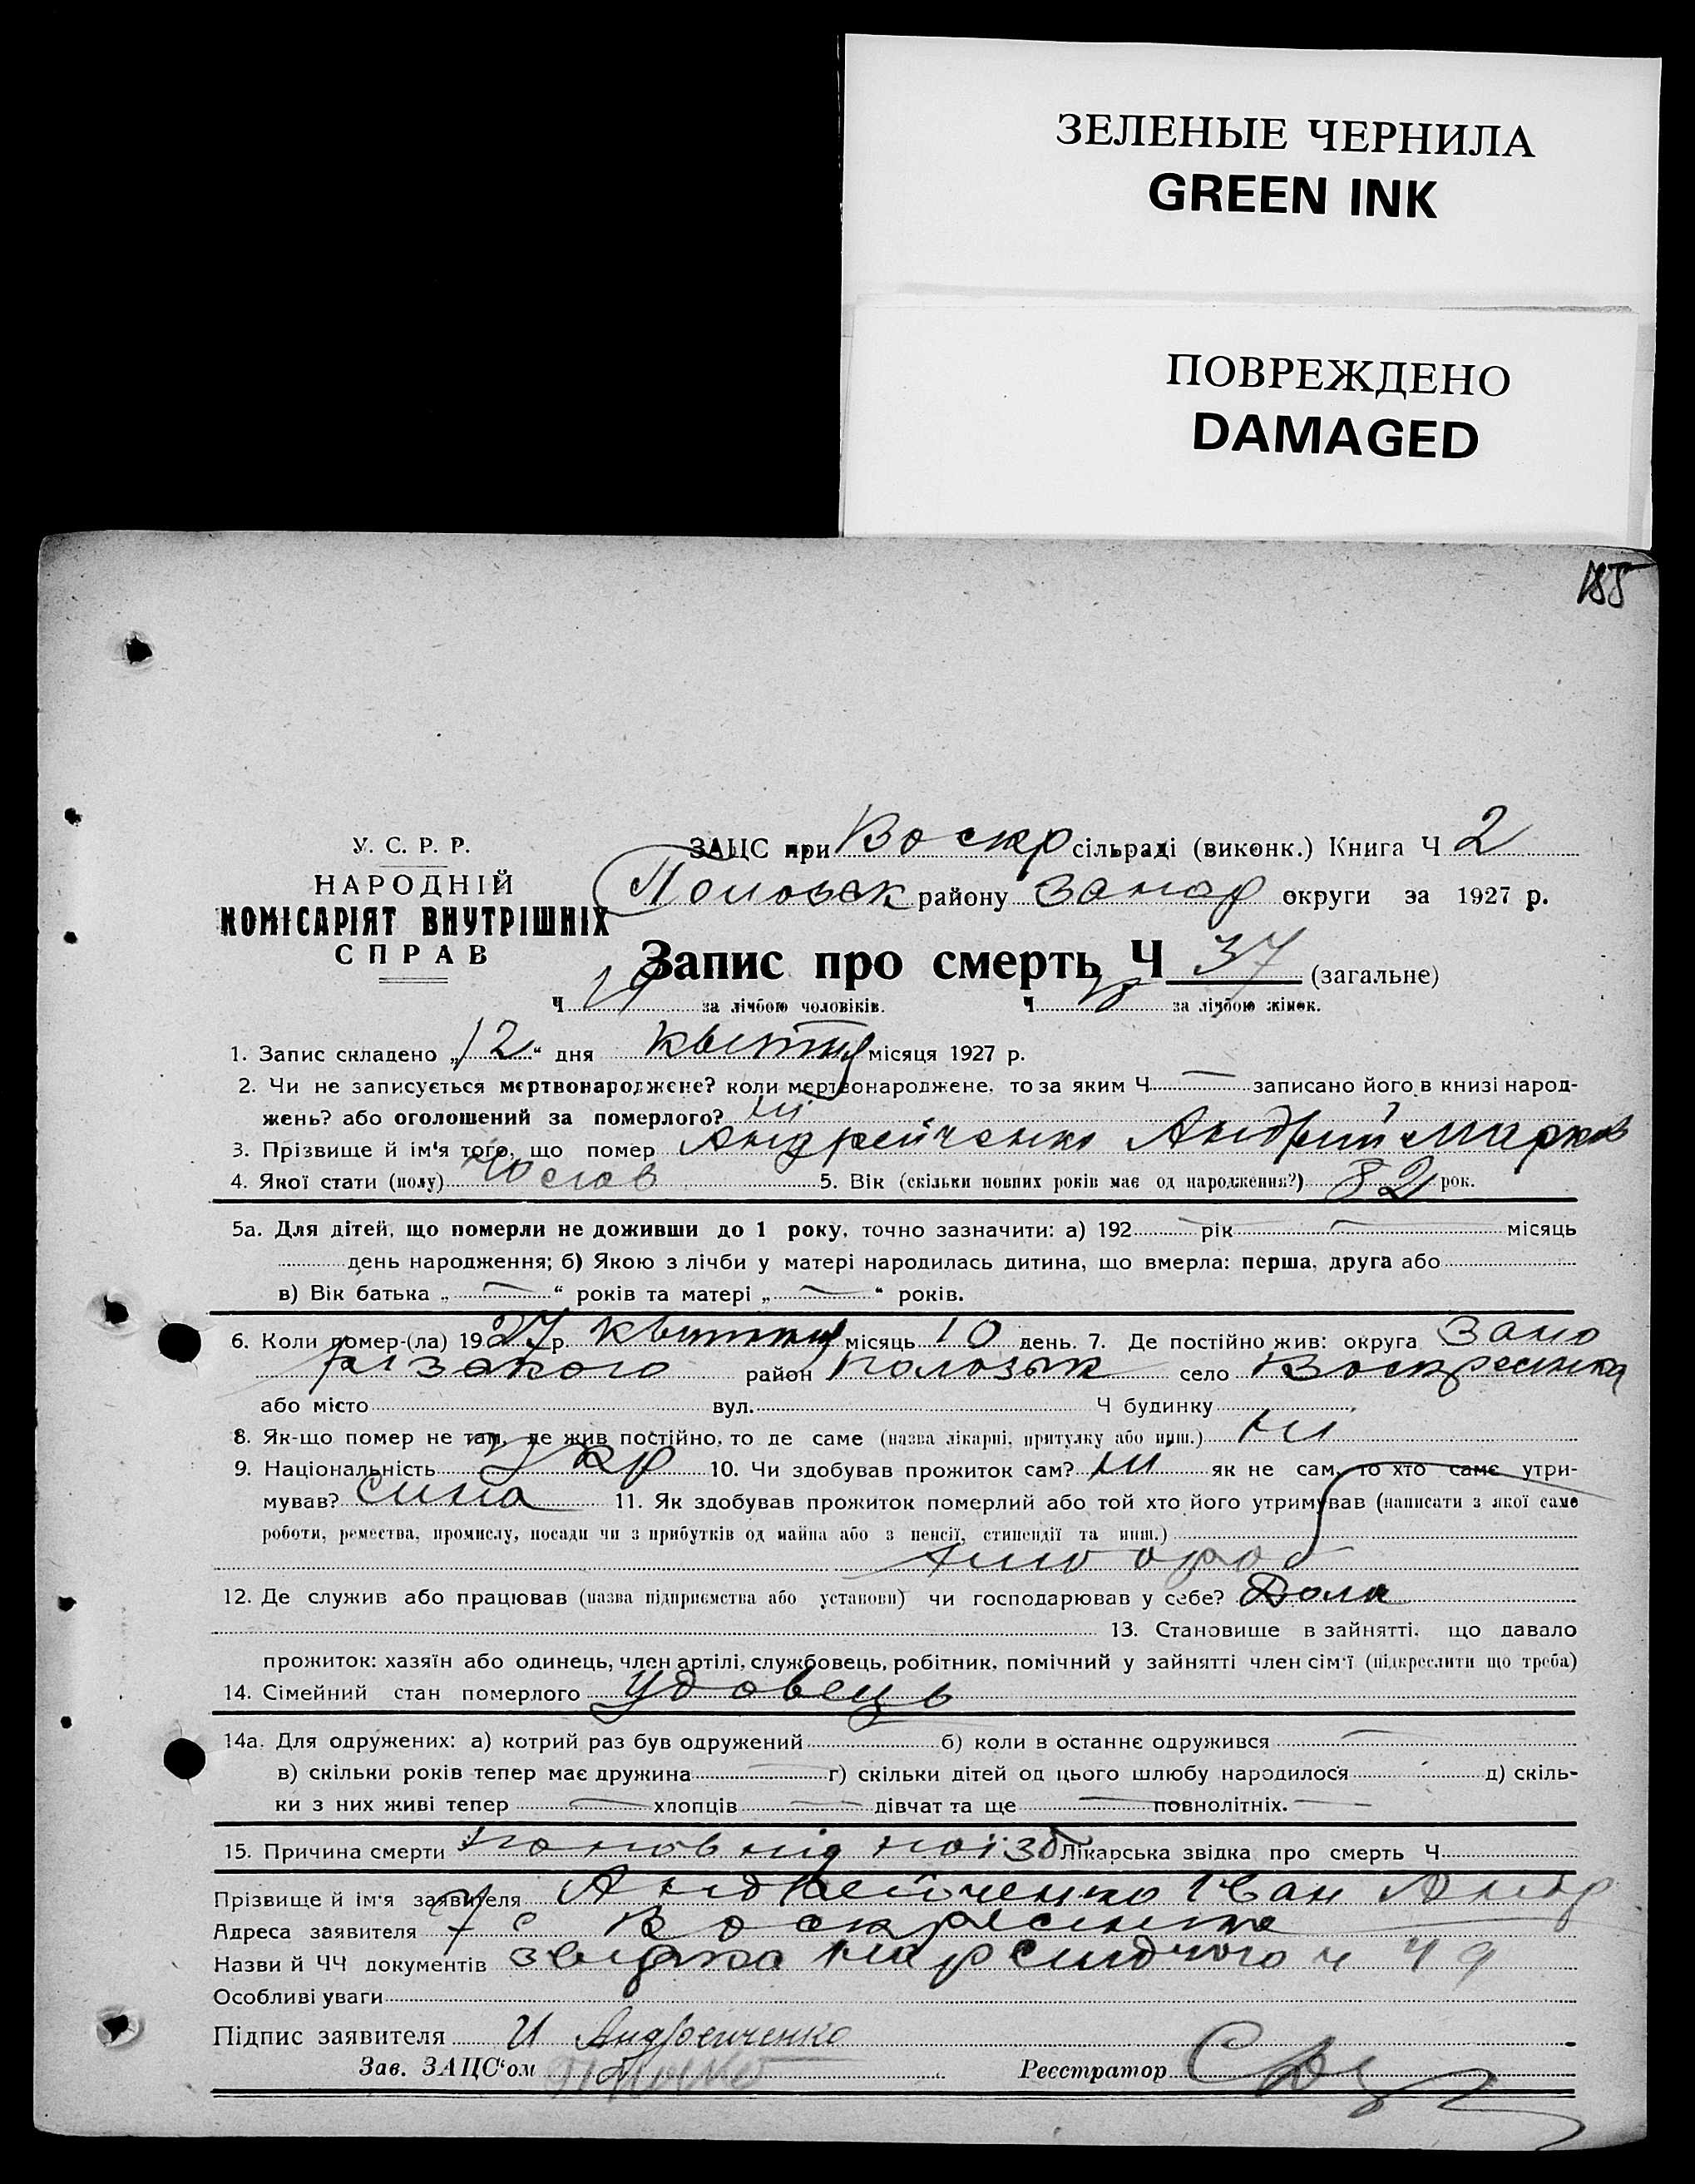 ЗЕЛЕНЫЕ ЧЕРНИЛА
GREEN INK
ПОВРЕЖДЕНО
DAMAGED
185
У. С. Р. Р.
НАРОДНІЙ
КОМІСАРІЯТ ВНУТРІШНІХ
СПРАВ
ЗАЦС при Воскр сільраді (виконк.) Книга Ч 2
Полозьк району Запор округи за 1927 р.
Запис про смерть Ч 37 (загальне)
Ч 19 за лічбою чоловіків. Ч за лічбою жінок.
1. Запис складено „12“ дня квітня місяця 1927 р.
2. Чи не записується мертвонароджене? коли мертвонароджене, то за яким Ч — записано його в книзі народ-
жень? або оголошений за померлого? ні
3. Прізвище й ім'я того, що помер Андрейченко Андрій Марков
4. Якої статі (полу) 5. Вік (скільки повних років має од народження?) 82 рок.
5а. Для дітей, що померли не доживши до 1 року, точно зазначити: а) 192 — рік — місяць
день народження; б) Якою з лічби у матері народилась дитина, що вмерла: перша, друга або
в) Вік батька „ — “ років та матері „ — “ років.
6. Коли помер-(ла) 1927 р. квітня місяць 10 день. 7. Де постійно жив: округа Запо
різького район Полозьк село Воскресенка
або місто вул. Ч будинку
8. Як-що помер не там, де жив постійно, то де саме (назва лікарні, притулку або инш.) ні
9. Національність Укр 10. Чи здобував прожиток сам? ні як не сам, то хто саме утри-
мував? сина 11. Як здобував прожиток померлий або той хто його утримував (написати з якої саме
роботи, ремества, промислу, посади чи з прибутків од майна або з пенсії, стипендії та инш.)
хлібороб
12. Де служив або працював (назва підприємства або установи) чи господарював у себе? Дома
13. Становище в зайнятті, що давало
прожиток: хазяїн або одинець, член артілі, службовець, робітник, помічний у зайнятті член сім'ї (підкреслити що треба)
14. Сімейний стан померлого удовець
14а. Для одружених: а) котрий раз був одружений б) коли в останнє одружився —
в) скільки років тепер має дружина — г) скільки дітей од цього шлюбу народилося — д) скіль-
ки з них живі тепер — хлопців — дівчат та ще — повнолітніх. —
15. Причина смерти попов під поїзд Лікарська звідка про смерть Ч
Прізвище й ім'я заявителя Андрейченко Іван Андр
Адреса заявителя с Воскресенка
Назви й ЧЧ документів ч 49
Особливі уваги
Підпис заявителя И Андрейченко
Зав. ЗАЦС'ом
Реєстратор